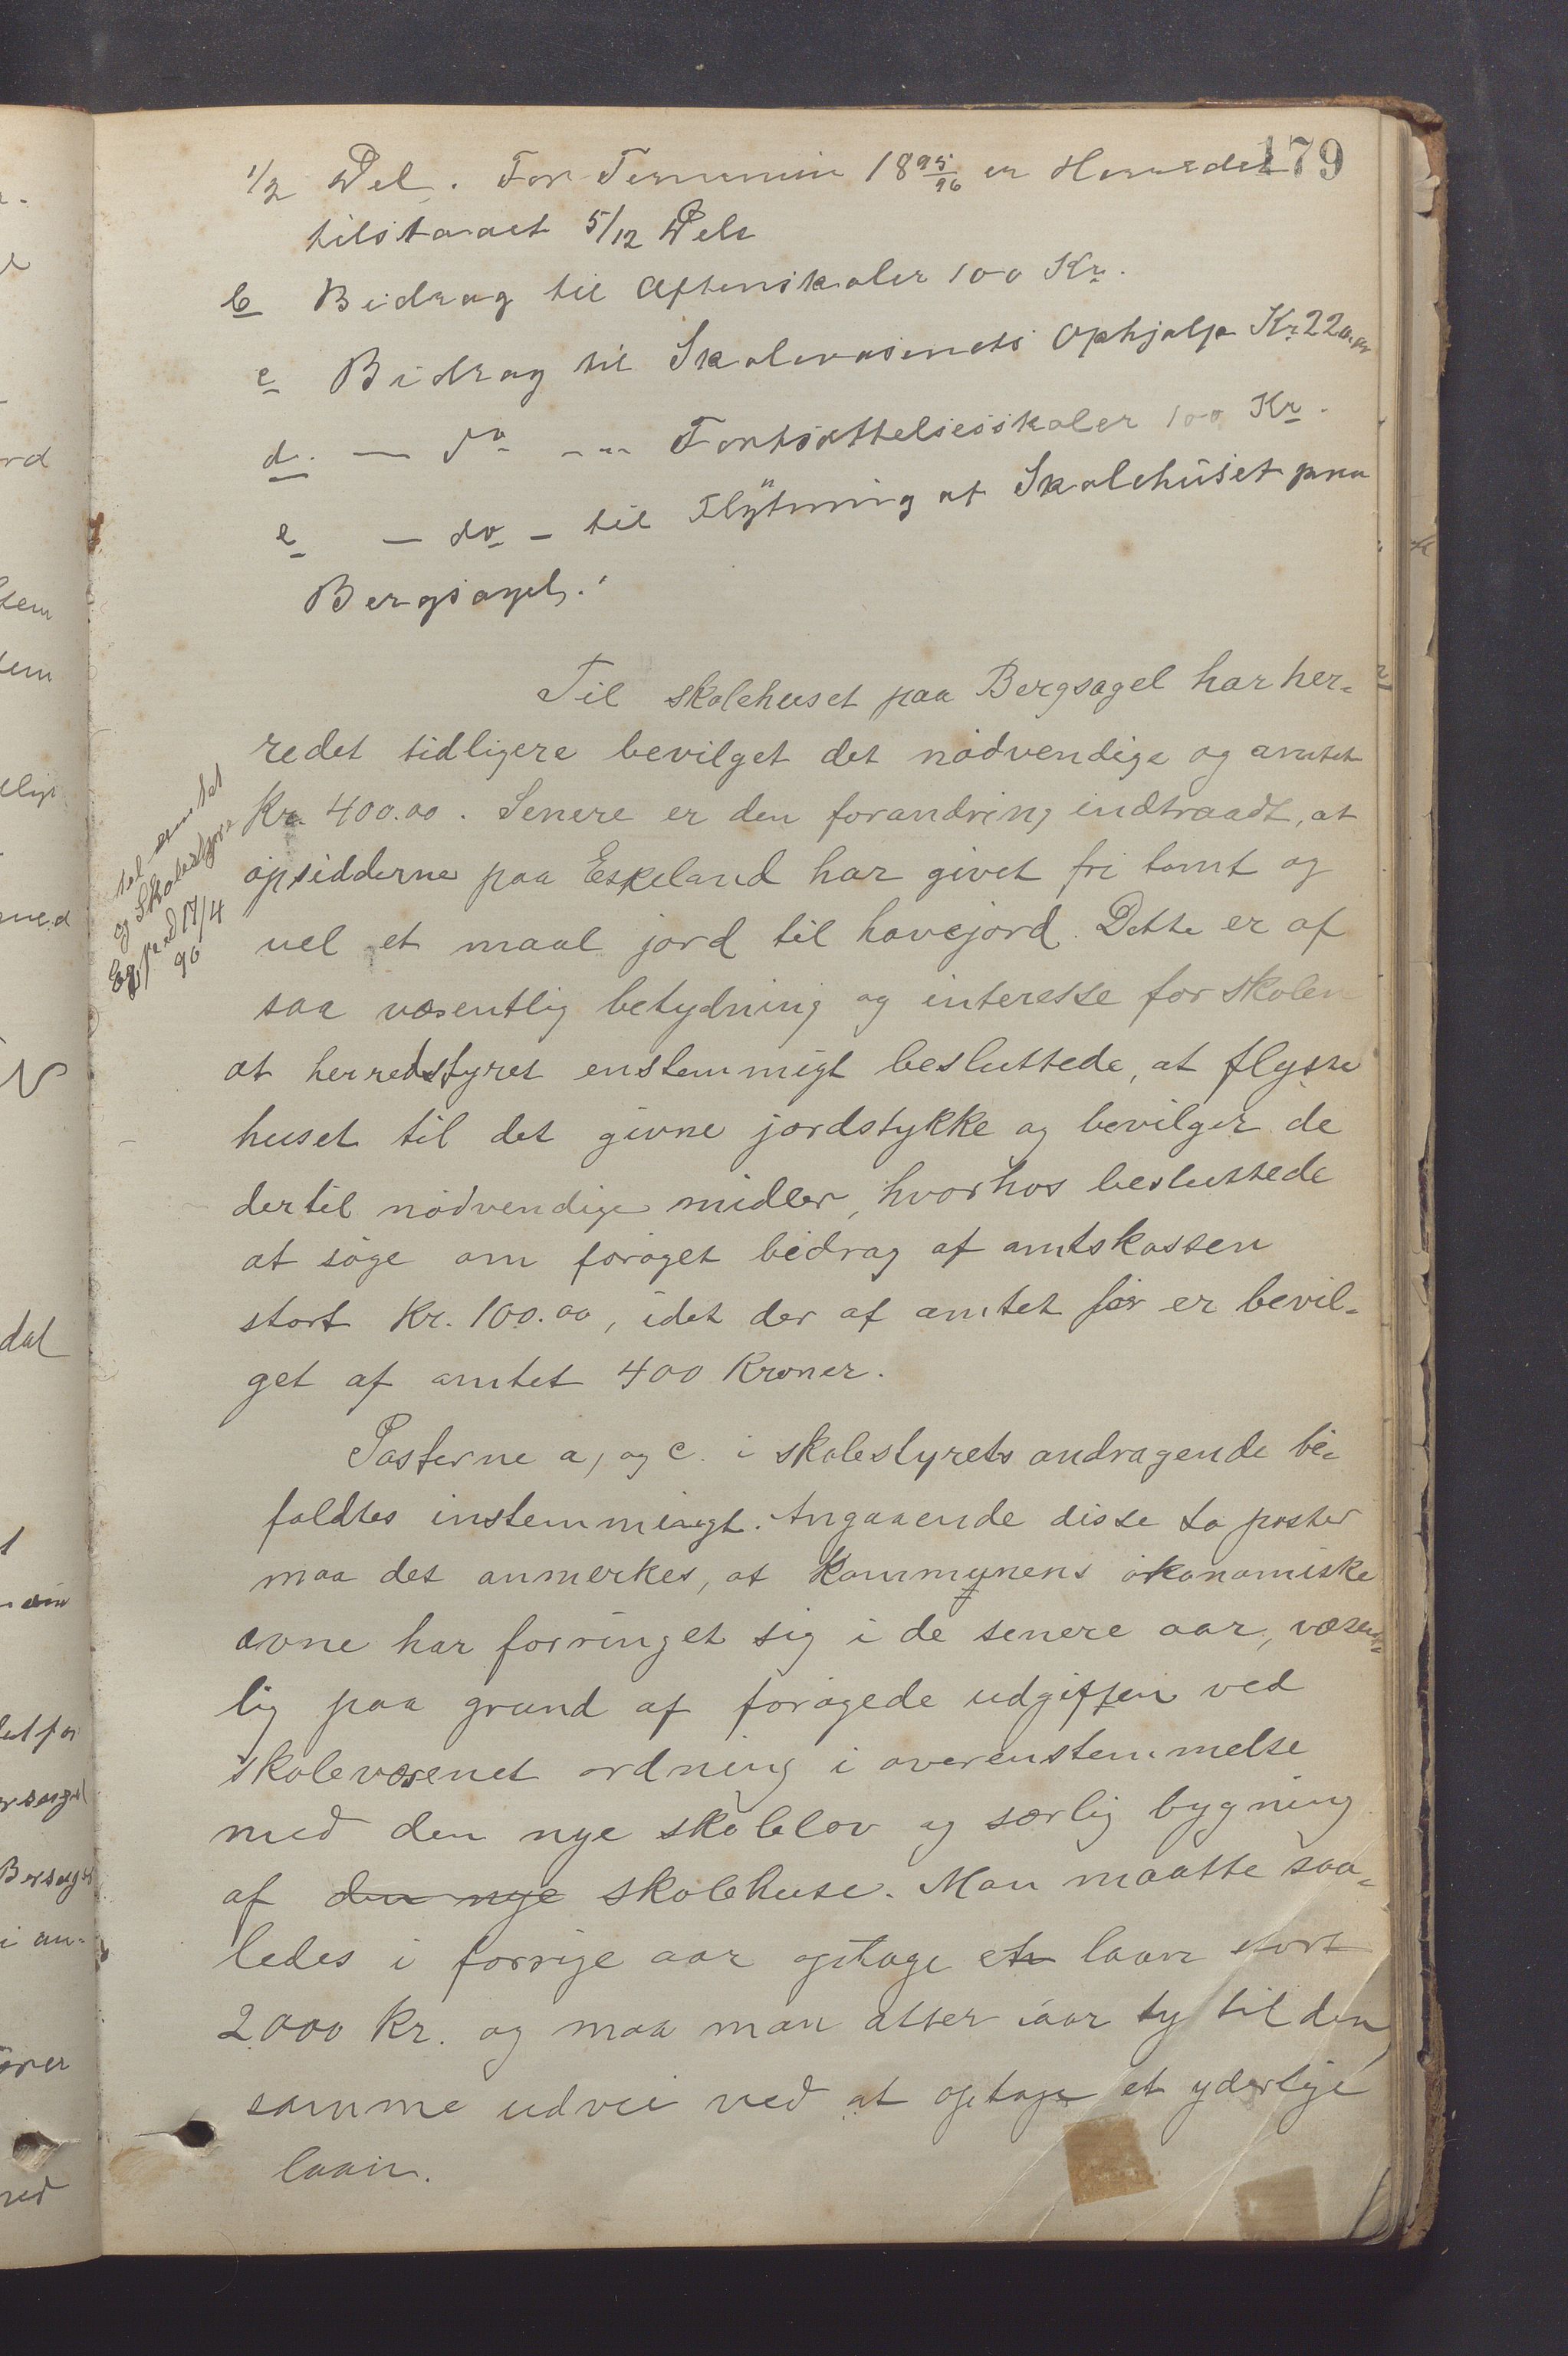 179
1/2 Del. For Terminin 18 95/96 er Herredet
tilstaaet 5/12 Dels
b Bidrag til Aftenskoler 100 Kr.
c Bidrag til Skolevæsenets Ophjælp Kr 220.00
d. — do — Fortsættelsesskoler 100 Kr.
e — do — til Flÿtning af Skolehuset paa
Bergsagel.
Til skolehuset paa Bergsagel har her-
redet tidligere bevilget det nödvendige og amtet
Kr. 400.00. Senere er den forandring indtraadt, at
opsidderne paa Eskeland har givet fri tomt og
vel et maal jord til havejord. Dette er af
saa væsentlig betydning og interesse for skolen
at herredstyret enstemmigt besluttede, at flytte
huset til det givne jordstykke og bevilger de
dertil nödvendige midler, hvorhos besluttede
at söge om foröget bidrag af amtskassen
stort Kr. 100.00, idet der af amtet för er bevil-
get af amtet 400 Kroner.
Posterne a, og c. i skolestyrets andragende bi-
faldtes instemmigt. Angaaende disse to poster
maa det anmerkes, at kommunens ökonomiske
ævne har forringet sig i de senere aar, væsent-
lig paa grund af forögede udgifter ved
skolevæsenet ordning i overenstemmelse
med den nye skolelov og særlig bygning
af den nye skolehuse. Man maatte saa-
ledes i forrige aar optage et laan stort
2000 Kr. og maa man atter iaar ty til den
samme udvei ved at optage et yderlige
laan.
til amtet
og Skolestyre
Exped 17/4
96